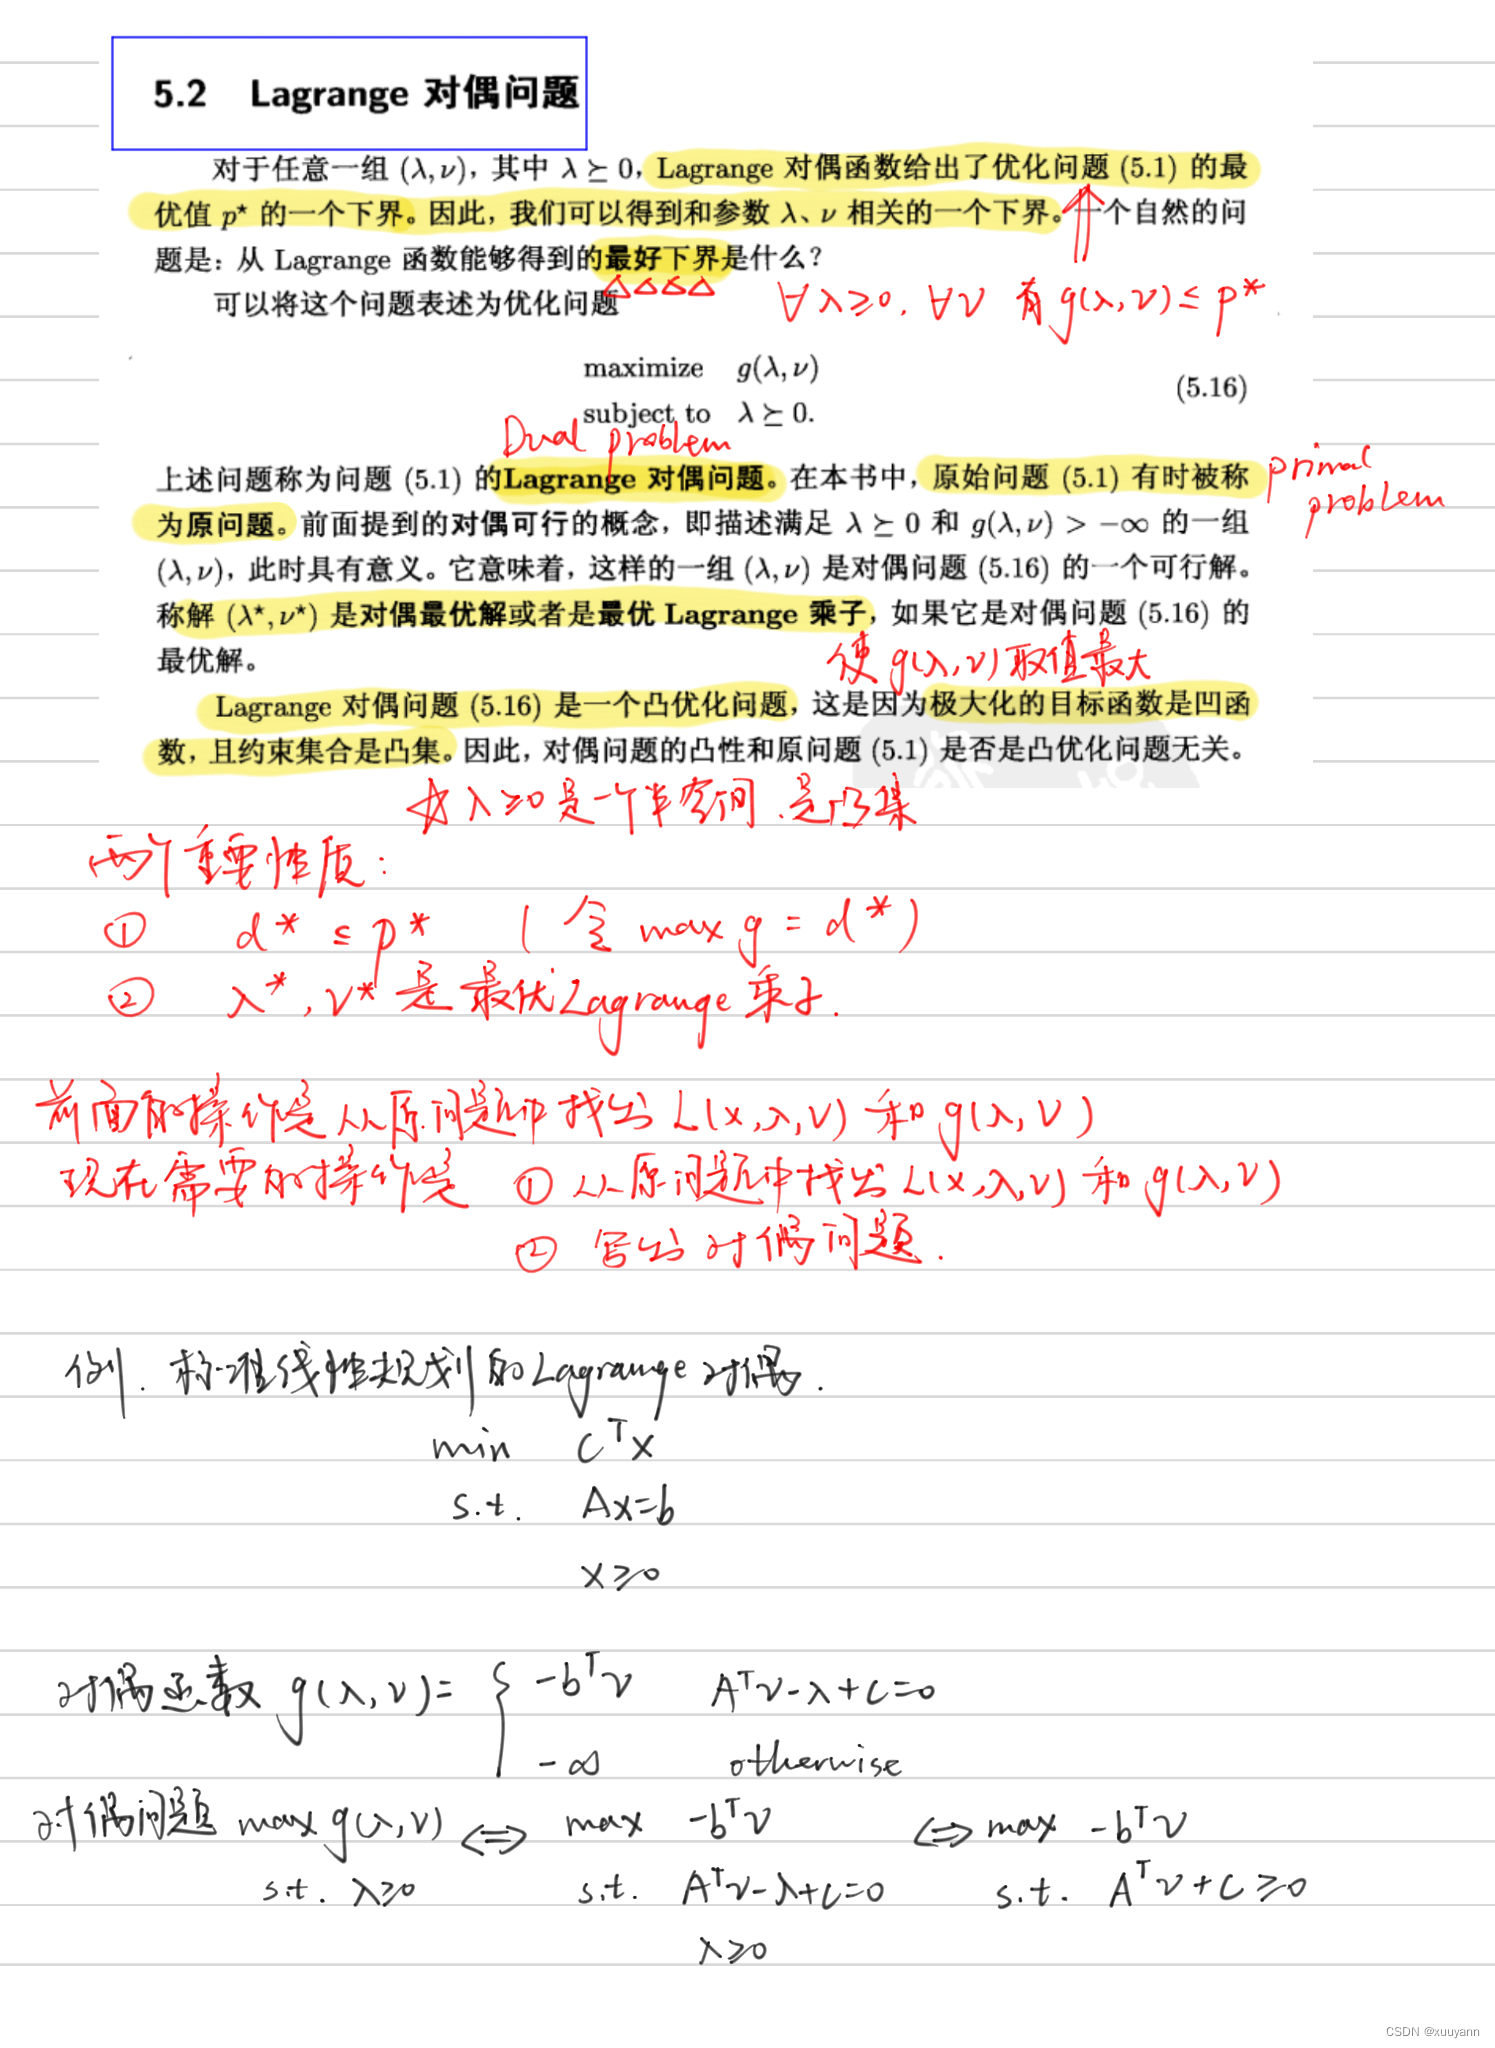 5.2 Lagrange 对偶问题
对于任意一组 (λ, ν), 其中 λ ⪰ 0, Lagrange 对偶函数给出了优化问题 (5.1) 的最
优值 p* 的一个下界。因此, 我们可以得到和参数 λ、ν 相关的一个下界。一个自然的问
题是: 从 Lagrange 函数能够得到的最好下界是什么?
可以将这个问题表述为优化问题
∀λ≥0, ∀ν 有 g(λ,ν) ≤ p*
maximize g(λ, ν)
(5.16)
subject to λ ⪰ 0.
Dual problem
上述问题称为问题 (5.1) 的Lagrange 对偶问题。在本书中, 原始问题 (5.1) 有时被称
primal
problem
为原问题。前面提到的对偶可行的概念, 即描述满足 λ ⪰ 0 和 g(λ, ν) > −∞ 的一组
(λ, ν), 此时具有意义。它意味着, 这样的一组 (λ, ν) 是对偶问题 (5.16) 的一个可行解。
称解 (λ*, ν*) 是对偶最优解或者是最优 Lagrange 乘子, 如果它是对偶问题 (5.16) 的
最优解。
使 g(λ,ν) 取值最大
Lagrange 对偶问题 (5.16) 是一个凸优化问题, 这是因为极大化的目标函数是凹函
数, 且约束集合是凸集。因此, 对偶问题的凸性和原问题 (5.1) 是否是凸优化问题无关。
☆ λ≥0 是一个半空间, 是凸集
两个重要性质:
① d* ≤ p* (令 max g = d*)
② λ*, ν* 是最优Lagrange乘子.
前面的操作是从原问题中找出 L(x,λ,ν) 和 g(λ,ν)
现在需要的操作是 ① 从原问题中找出 L(x,λ,ν) 和 g(λ,ν)
② 写出对偶问题.
例. 标准线性规划的Lagrange对偶.
min Cᵀx
s.t. Ax=b
x≥0
对偶函数 g(λ,ν)= { -bᵀν Aᵀν-λ+C=0
-∞ otherwise
对偶问题 max g(λ,ν) ⟺ max -bᵀν ⟺ max -bᵀν
s.t. λ≥0 s.t. Aᵀν-λ+C=0 s.t. Aᵀν+C≥0
λ≥0
CSDN @xuuyann